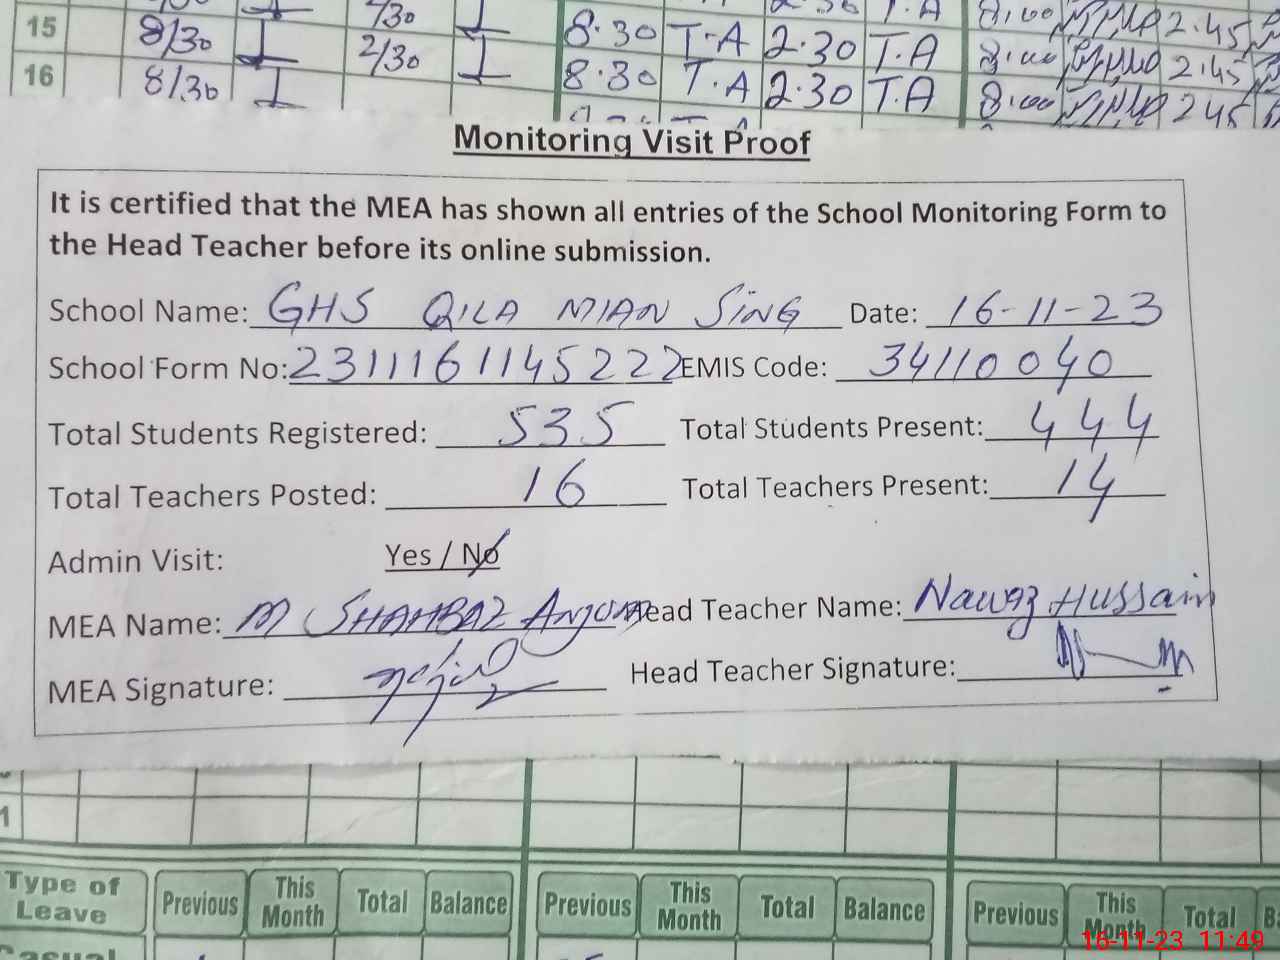 15 8/30 2/30 8.30 T.A 2.30 T.A 8:00 2.45
16 8/30 8.30 T.A 2.30 T.A 8:00 2 45
Monitoring Visit Proof
It is certified that the MEA has shown all entries of the School Monitoring Form to
the Head Teacher before its online submission.
School Name: GHS QILA MIAN SING Date: 16-11-23
School Form No: 2311161145222 EMIS Code: 34110040
Total Students Registered: 535 Total Students Present: 444
Total Teachers Posted: 16 Total Teachers Present: 14
Admin Visit: Yes / No
MEA Name: M SHAHBAZ Anjum Head Teacher Name: Nawaz Hussain
MEA Signature: Head Teacher Signature:
1
Type of Leave Previous This Month Total Balance Previous This Month Total Balance Previous This Month Total
Casual
16-11-23 11:49